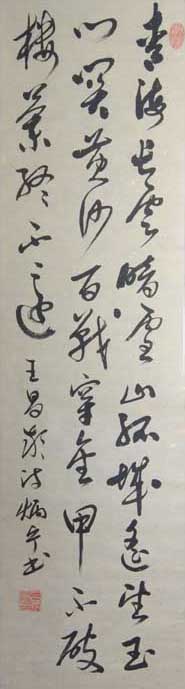 青海長雲暗雪山孤城遙望玉
門關黃沙百戰穿金甲不破
樓蘭終不還 王昌齡詩 炳書